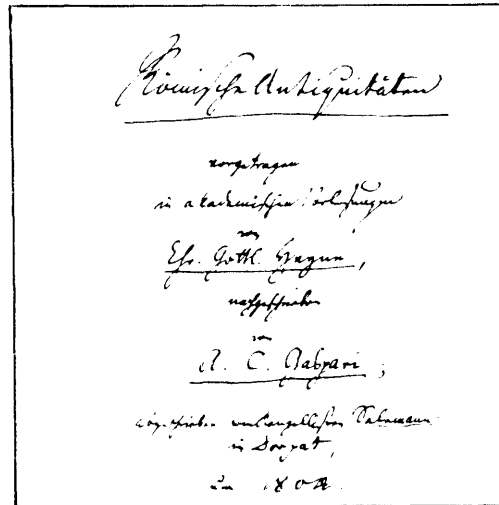 Römische Antiquitäten
vorgetragen
in akademischen Vorlesungen
von
Chr. Gottl. Heyne,
nachgeschrieben
von
A. C. Gaspari,
abgeschrieben
in Dorpat,
um 1804.